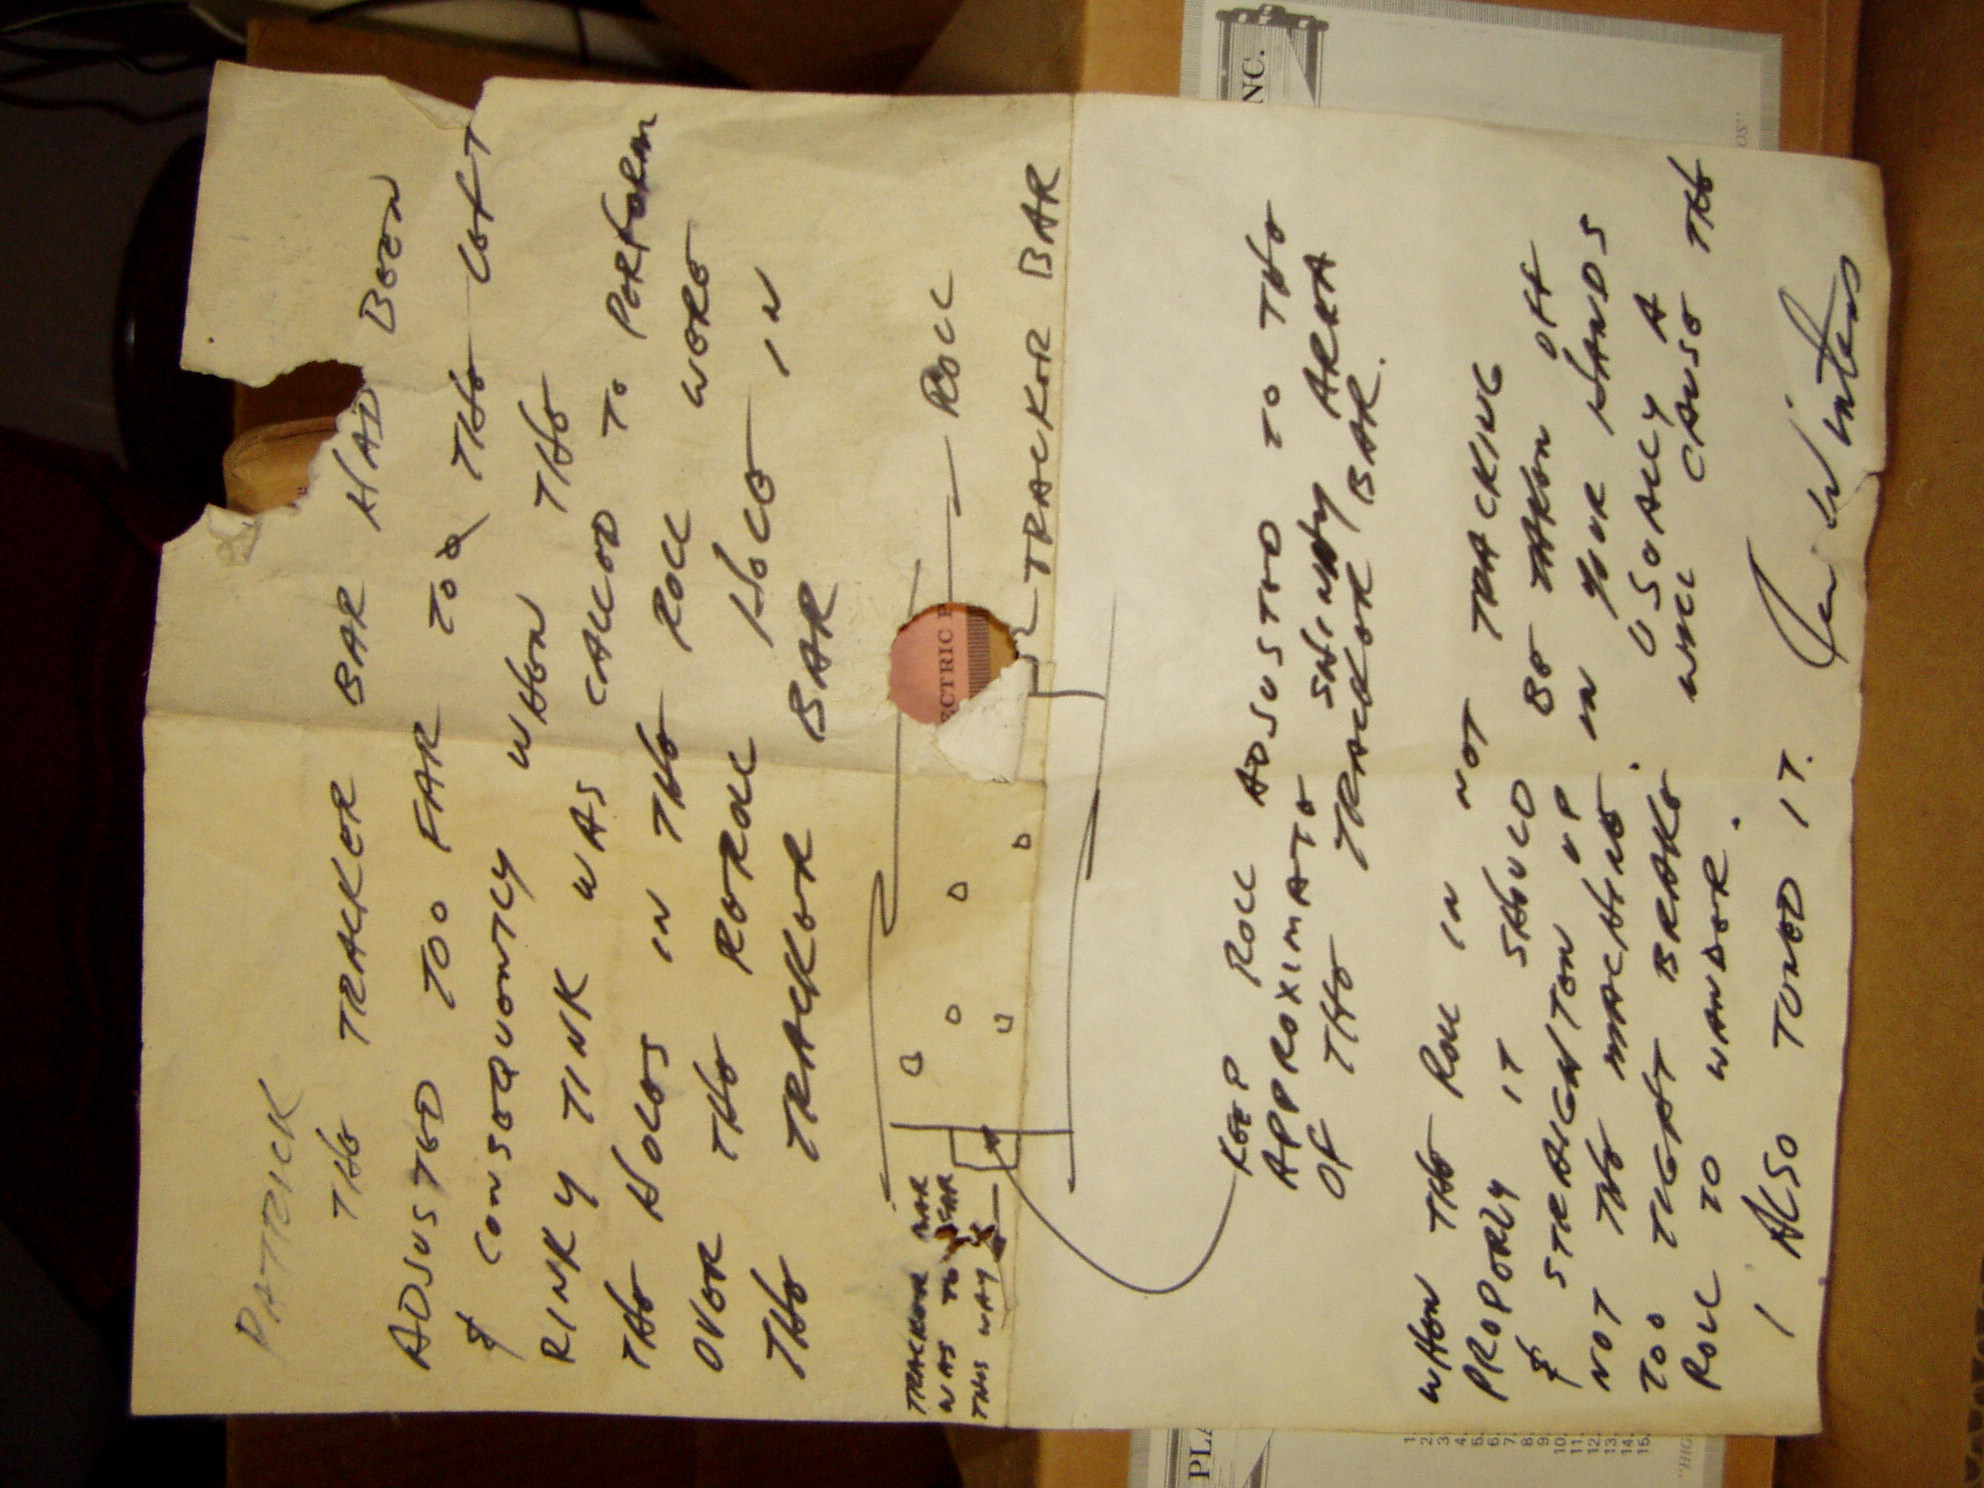 PATRICK
THE TRACKER BAR HAD BEEN
ADJUSTED TOO FAR TO THE LEFT
& CONSEQUENTLY WHEN THE
RINKY TINK WAS CALLED TO PERFORM
THE HOLES IN THE ROLL WERE
OVER THE REROLL HOLE IN
THE TRACKER BAR
ROLL
TRACKER BAR
TRACKER BAR
WAS TO FAR
THIS WAY
KEEP ROLL ADJUSTED TO THE
APPROXIMATE SHINNY AREA
OF THE TRACKER BAR.
WHEN THE ROLL IN NOT TRACKING
PROPERLY IT SHOULD BE TAKEN OFF
& STRAIGHTEN UP IN YOUR HANDS
NOT THE MACHINE. USUALLY A
TOO TIGHT BRAKE WILL CAUSE THE
ROLL TO WANDER.
I ALSO TUNED IT.
NC.
ECTRIC P
PLA
OS"
"HIG
1.
2.
3.
4.
5.
6.
7.
8.
9.
10.
11.
12.
13.
14.
15.